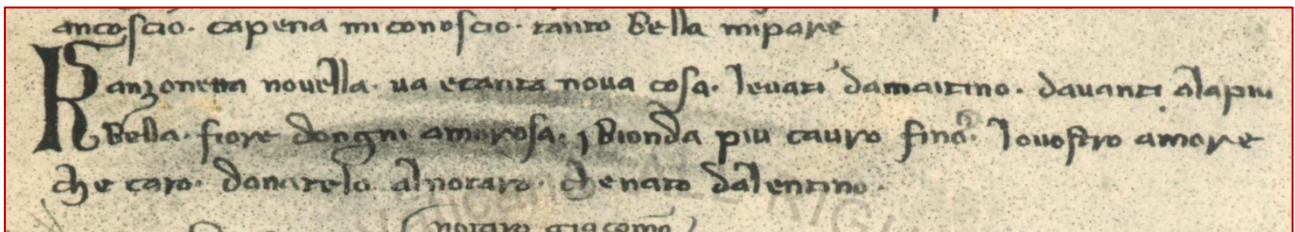 ancoscio· capena mi conoscio· tanto bella mipare
Kanzonetta novella· va ecanta nova cosa· levati damaitino· davanti alapiu
bella· fiore dongni amorosa· ⁊ bionda piu cauro fino· lovostro amore
che caro· donatelo alnotaro· chenato dalentino·
notaro giacomo